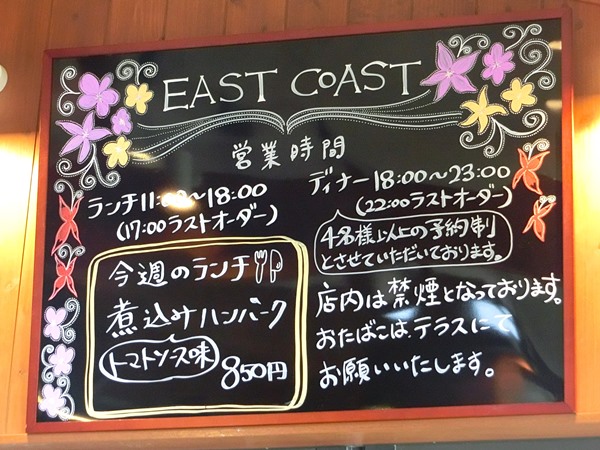 EAST COAST
営業時間
ランチ 11:00〜18:00
(17:00ラストオーダー)
今週のランチ
煮込みハンバーク
トマトソース味
850円
ディナー 18:00〜23:00
(22:00ラストオーダー)
4名様以上の予約制
とさせていただいております。
店内は禁煙となっております。
おたばこは、テラスにて
お願いいたします。